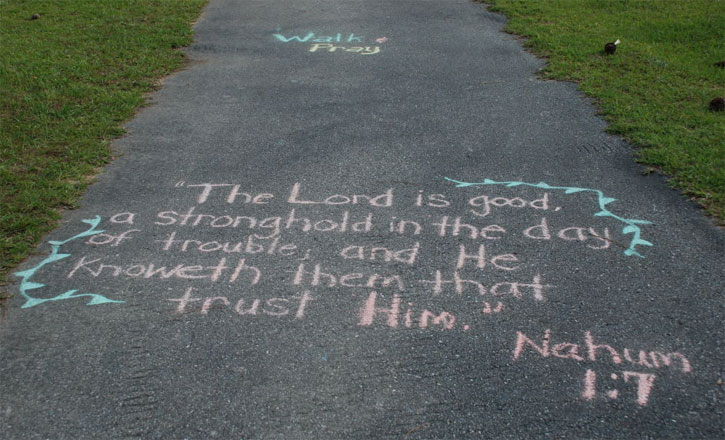 Walk &
Pray
"The Lord is good,
a stronghold in the day
of trouble, and He
Knoweth them that
trust Him."
Nahum
1:7